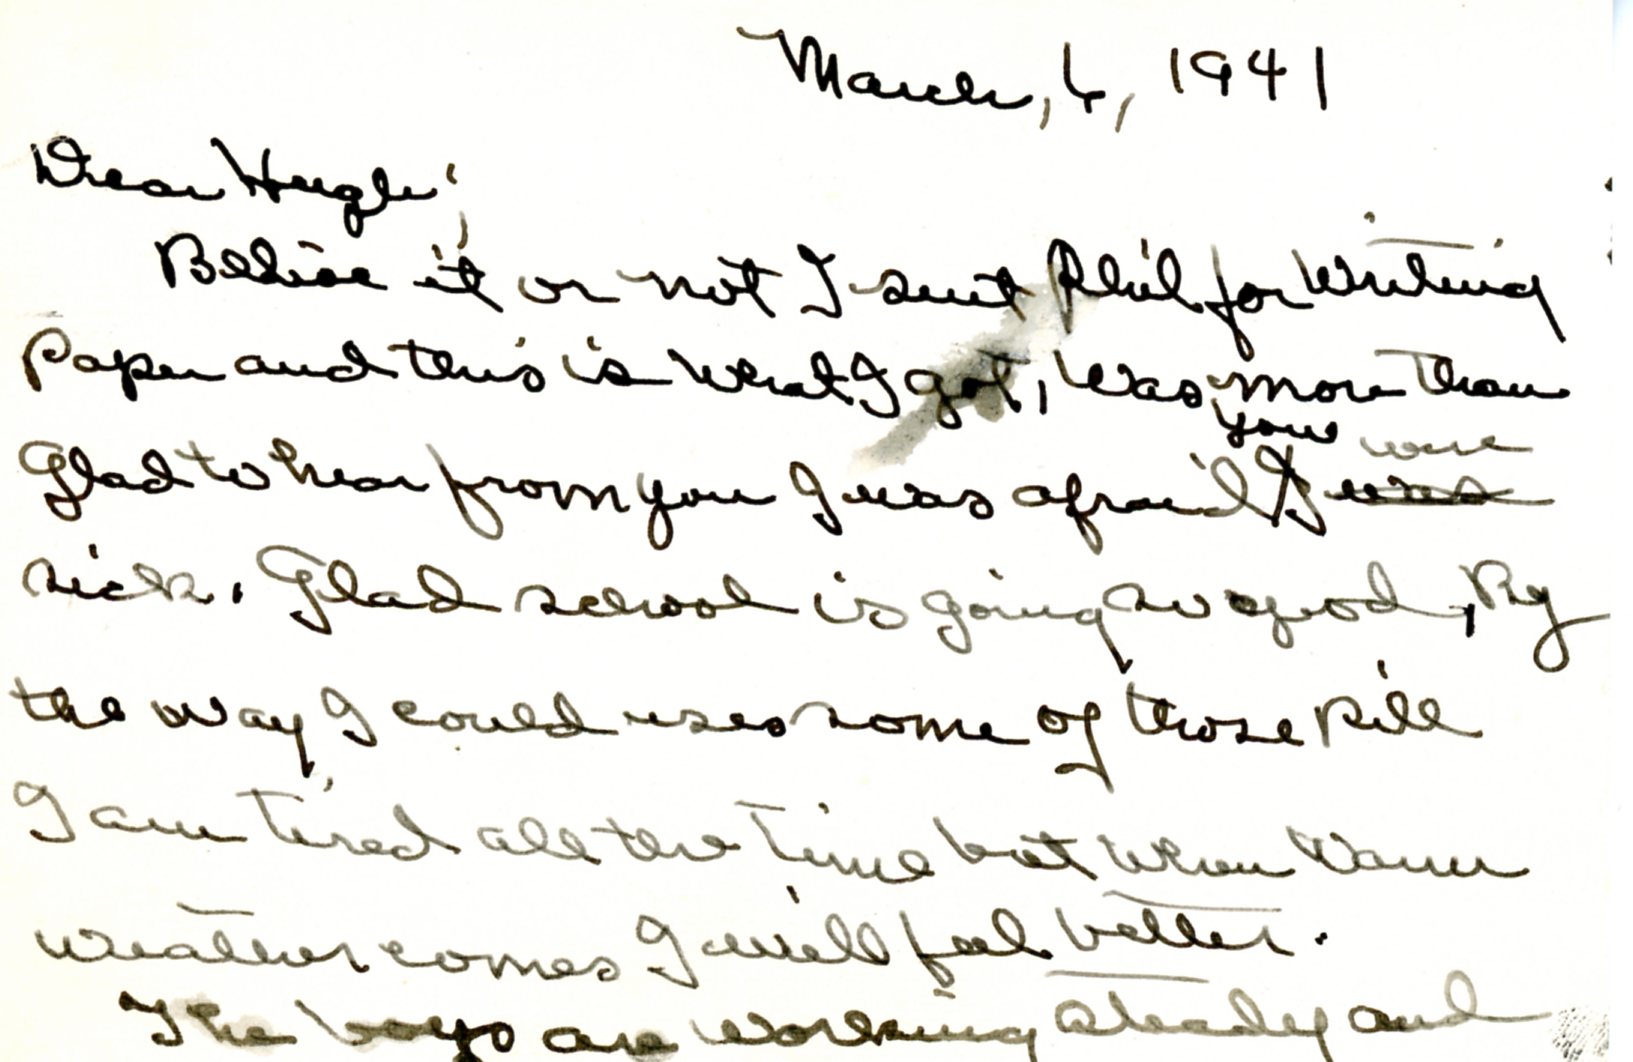 March, 6, 1941
Dear Hugh;
Believe it or not I sent Phil for Writing
Paper and this is What I got, Was more than
you were
Glad to hear from you I was afraid I was
sick. Glad school is going so good, By
the way I could uses some of those Pill
I am Tired all the Time but When Warm
weather comes I will feel better.
The boys are Working steady and